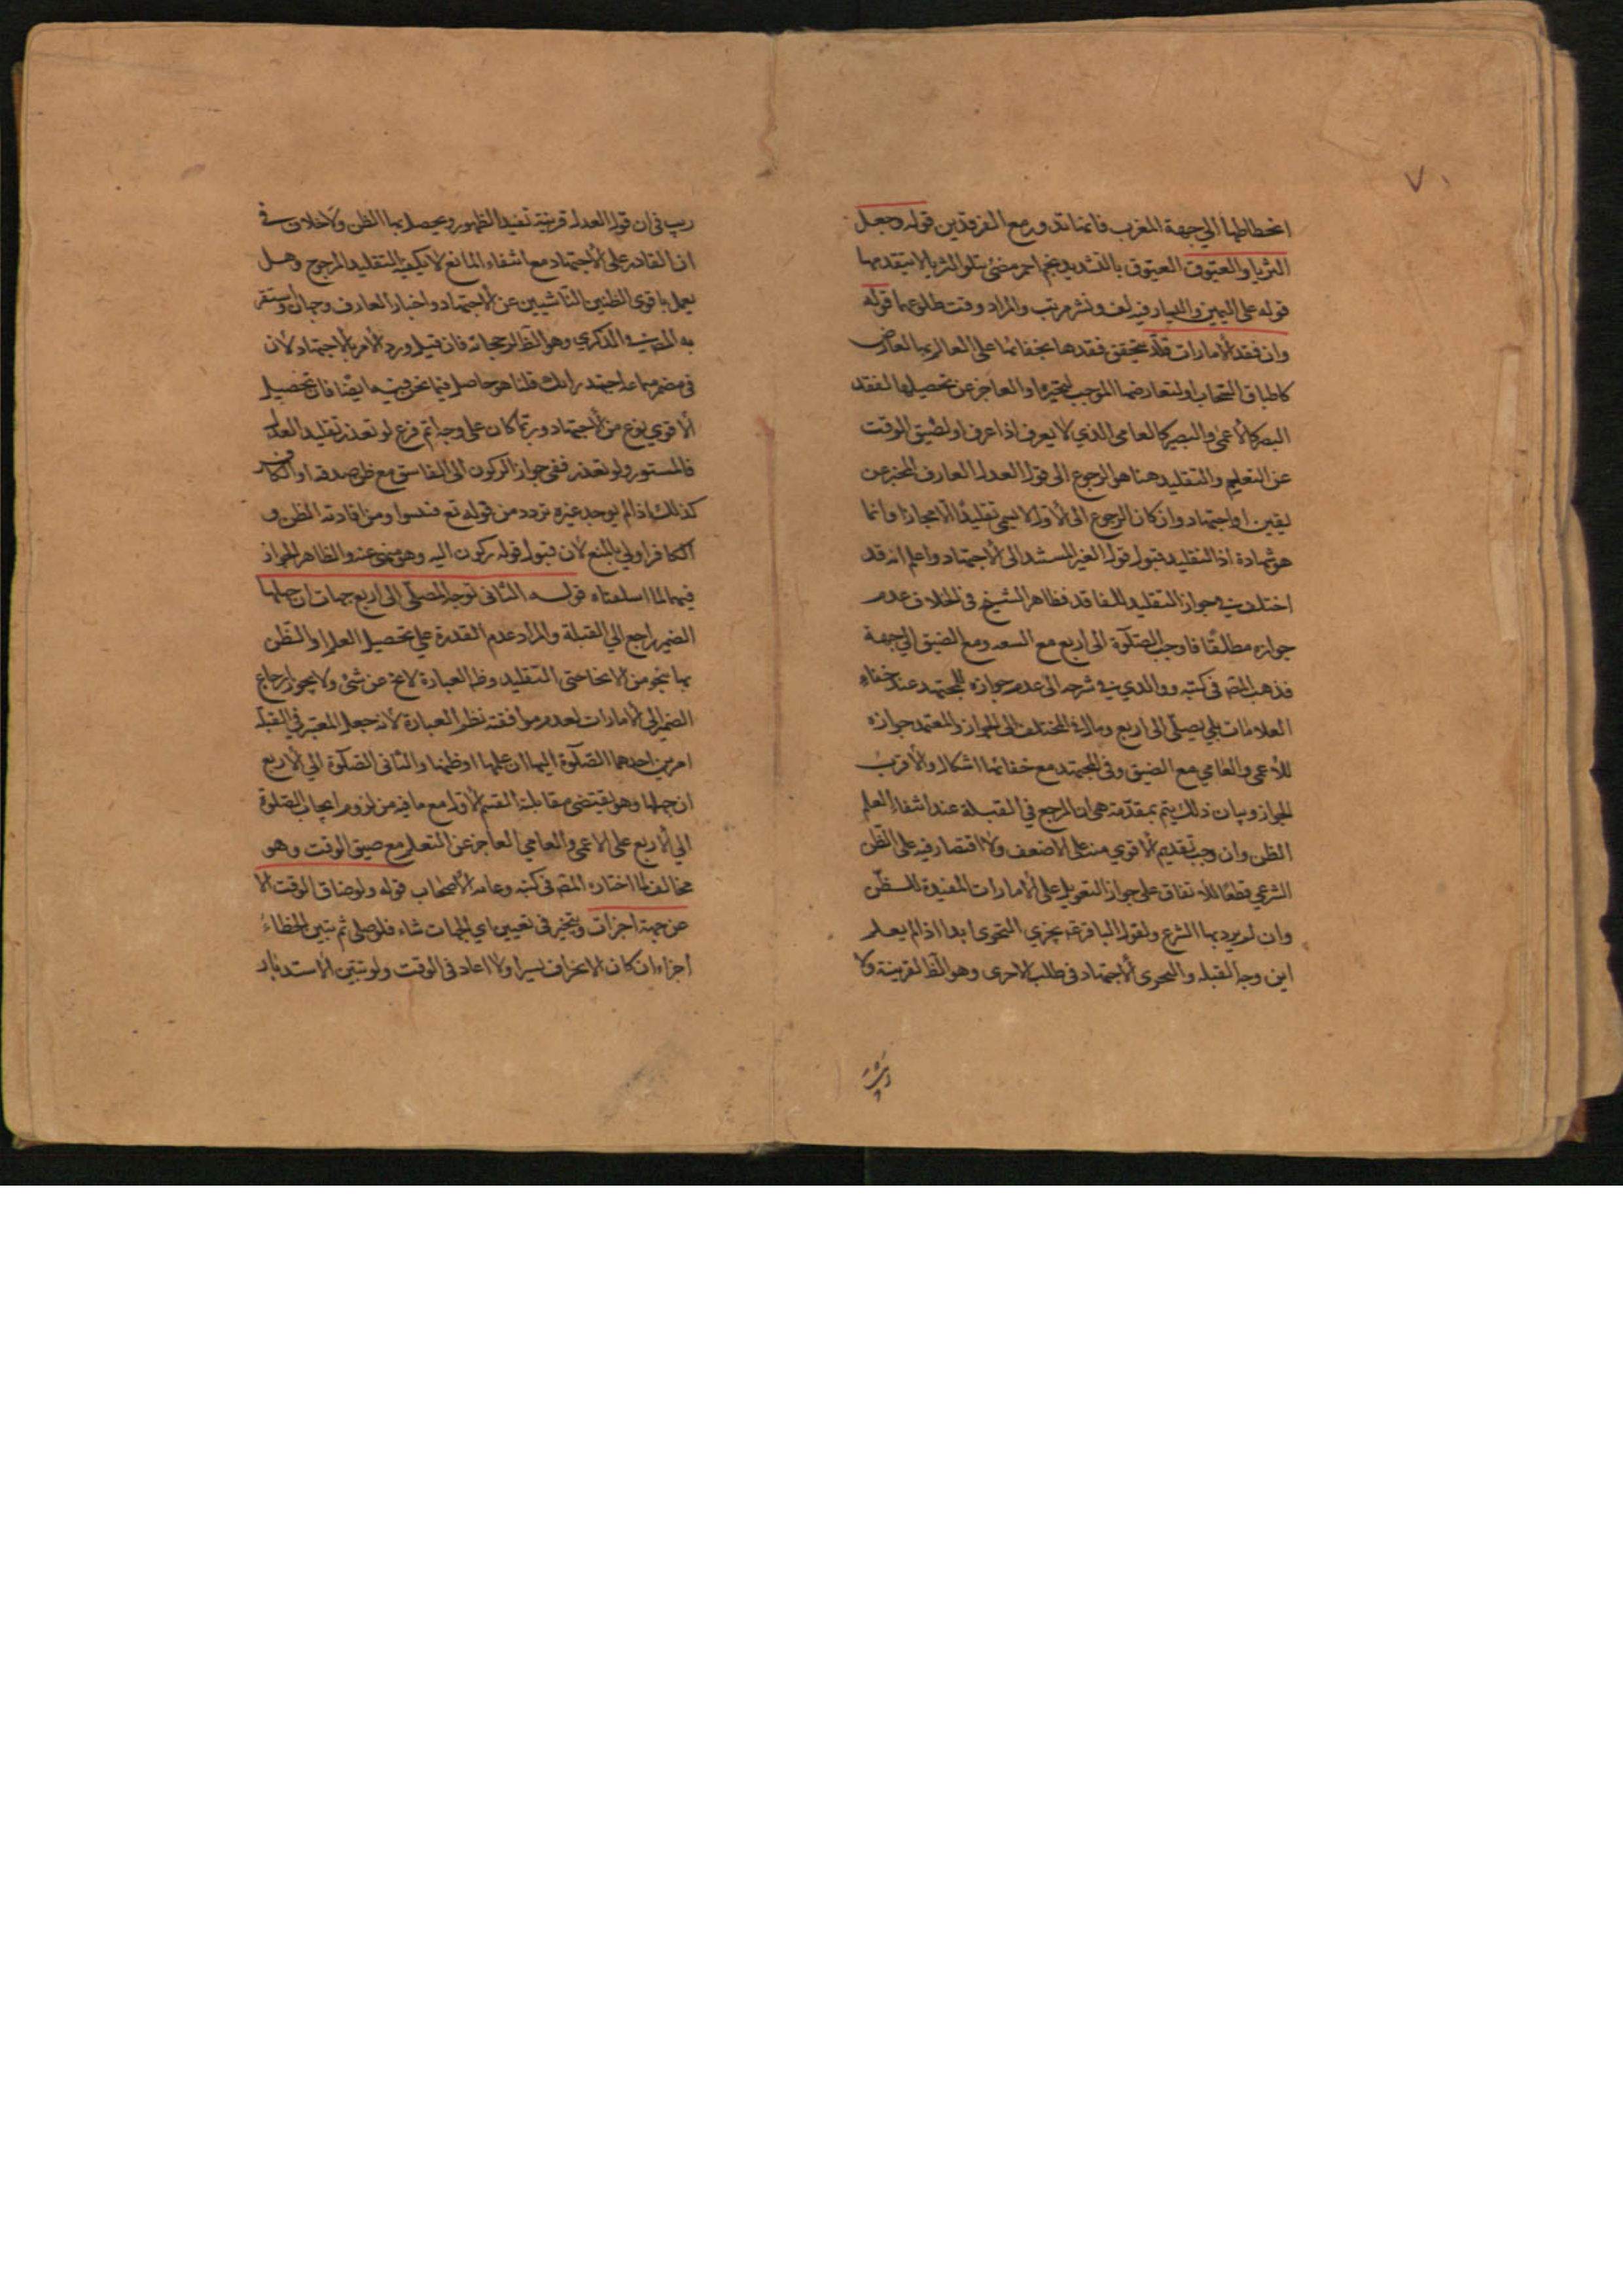 ٧٠
انحطاطهما الي جهة المغرب فانهما تدور مع الفرقدين قوله وجعل
الثريا والعيّوق العيّوق بالتشديد نجم احمر مضئ يتلو الثريا لا يتقدمها
قوله على اليمين واليسار فيه لف ونشر مرتب والمراد وقت طلوعهما قوله
وان فقد الامارات قلّد يتحقق فقدها بخفائها على العالم بها لعارض
كاطباق السحاب او لتعارضها الموجب لتحيره او العاجز عن تحصيلها لفقد
البصر كالأعمى والبصير كالعامى الذي لا يعرف اذا عرف او لضيق الوقت
عن التعليم والتقليد هنا هو الرجوع الى قول العدل العارف المخبر عن
يقين او اجتهاد وان كان الرجوع الى الأول لا يسمى تقليدًا الا مجازا وانما
هو شهادة اذ التقليد قبول قول الغير المستند الى الأجتهاد واعلم انه قد
اختلف في جواز التقليد للفاقد فظاهر الشيخ في الخلاف عدم
جوازه مطلقًا فاوجب الصلوة الى اربع مع السعه ومع الضيق الي جهة
فذهب المصـ فى كتبه ووالدي في شرحه الى عدم جوازه للمجتهد عند خفاء
العلامات بل يصلّى الى اربع ومال في المختلف الى الجواز والمعتمد جوازه
للأعمى والعامي مع الضيق وفى المجتهد مع خفائها اشكال والأقرب
الجواز وبيان ذلك يتم بمقدّمة هى ان المرجع في القبلة عند انتفاء العلم
الظن وان وجب تقديم الأقوي منه على الاضعف ولا اقتصار فيه على الظن
الشرعي قطعًا للاتفاق على جواز التعويل على الأمارات المفيدة للـظن
وان لم يرد بها الشرع ولقول الباقر عـ يجزي التحرى ابدا اذا لم يعلم
اين وجه القبله والتحرى الأجتهاد فى طلب الاحرى وهو الظ القرينة ولا
ريب فى ان قول العدل قرينة تفيد الظهور ويحصل بها الظن ولا خلاف في
ان القادر على الأجتهاد مع انتفاء المانع لا يكفيه التقليد المرجوح وهل
يعمل باقوى الظنين الناشيين عن الأجتهاد واخبار العارف وجهان واستقر
به المصـ في الذكري وهو الظ لرجحانه فان قيل ورد الأمر بالاجتهاد لأن
فى مضمر سماعه اجتهد رايك قلنا هو حاصل فيما نحن فيه ايضا فان تحصيل
الأقوي نوع من الأجتهاد وربما كان على وجه اتم فرع لو تعذر تقليد العدل
فالمستور ولو تعذر ففى جواز الركون الى الفاسق مع ظن صدقه او الكافر
كذلك اذا لم يوجد غيره تردد من قوله تع فتبينوا ومن افادته الظن و
الكافر اولى بالمنع لأن قبول قوله ركون اليه وهو منهى عنه والظاهر الجواز
فيهما لما اسلفناه قولـه الثانى توجه المصلّى الى اربع جهات ان جهلها
الضمير راجع الي القبلة والمراد عدم القدرة على تحصيل العلم او الـظن
بها بنحو من الانحا حتى التقليد وظ العبارة لا يخ عن شئ ولا يجوز ارجاع
الضمير الى الأمارات لعدم موافقته نظم العبارة لانه جعل المعتبر في القبلة
امرين احدهما الصلوة اليها ان علمها او ظنها والثانى الصلوة الي الأربع
ان جهلها وهو يقتضى مقابلة القسم الأول مع ما فيه من لزوم ايجاب الصلوة
الي الأربع على الاعمى والعامي العاجز عن التعلم مع ضيق الوقت وهو
مخالف لما اختاره المصـ فى كتبه وعامه الأصحاب قوله ولو ضاق الوقت الا
عن جهة اجزات ويتخير فى تعيين اي الجهات شاء فلو صلى ثم تبين الخطاء
اجزاء ان كان الانحراف يسيرا والا اعاد فى الوقت ولو تبين الاستدبار